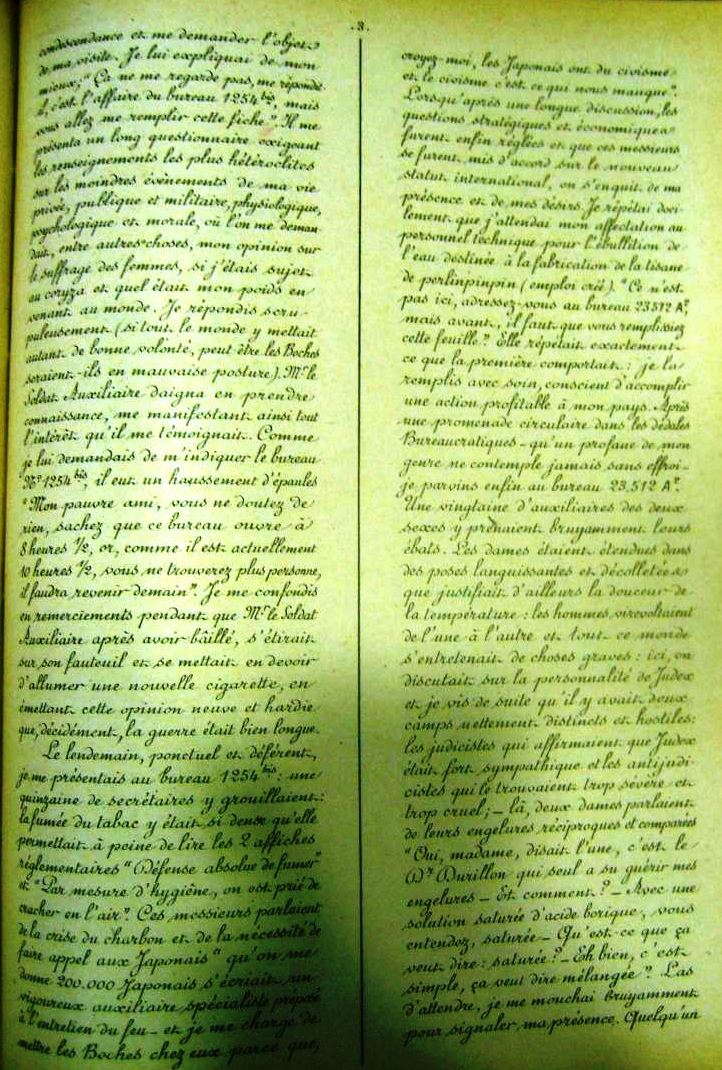 -3-
condescendance et me demander l'objet
de ma visite. Je lui expliquai de mon
mieux; "Ca ne me regarde pas, me répondit
il, c'est l'affaire du bureau 1254 bis, mais
vous allez me remplir cette fiche". Il me
présenta un long questionnaire exigeant
les renseignements les plus hétéroclites
sur les moindres évènements de ma vie
privée, publique et militaire, physiologique,
psychologique et morale, où l'on me deman-
dait, entre autres choses, mon opinion sur
le suffrage des femmes, si j'étais sujet
au coryza et quel était mon poids en
venant au monde. Je répondis scru-
puleusement (si tout le monde y mettait
autant de bonne volonté, peut être les Boches
seraient-ils en mauvaise posture). Mr le
Soldat Auxiliaire daigna en prendre
connaissance, me manifestant ainsi tout
l'intérêt qu'il me témoignait. Comme
je lui demandais de m'indiquer le bureau
No 1254 bis, il eut un haussement d'épaules
"Mon pauvre ami, vous ne doutez de
rien, sachez que ce bureau ouvre à
8 heures 1/2, or, comme il est actuellement
10 heures 1/2, vous ne trouverez plus personne,
il faudra revenir demain". Je me confondis
en remerciements pendant que Mr le Soldat
Auxiliaire après avoir bâillé, s'étirait
sur son fauteuil et se mettait en devoir
d'allumer une nouvelle cigarette, en
émettant cette opinion neuve et hardie
que, décidément, la guerre était bien longue.
Le lendemain, ponctuel et déférent,
je me présentais au bureau 1254 bis: une
quinzaine de secrétaires y grouillaient:
la fumée du tabac y était si dense qu'elle
permettait à peine de lire les 2 affiches
règlementaires "Défense absolue de fumer"
et "Par mesure d'hygiène, on est prié de
cracher en l'air". Ces messieurs parlaient
de la crise du charbon et de la nécessité de
faire appel aux Japonais "qu'on me
donne 200.000 Japonais s'écriait un
vigoureux auxiliaire spécialiste préposé
à l'entretien du feu - et je me charge de
mettre les Boches chez eux parce que,
croyez-moi, les Japonais ont du civisme
et le civisme c'est ce qui nous manque".
Lorsqu'après une longue discussion, les
questions stratégiques et économiques
furent enfin réglées et que ces messieurs
se furent mis d'accord sur le nouveau
statut international, on s'enquit de ma
présence et de mes désirs. Je répétai doci-
lement que j'attendai mon affectation au
personnel technique pour l'ébullition de
l'eau destinée à la fabrication de la tisane
de perlinpinpin (emploi créé). "Ce n'est
pas ici, adressez-vous au bureau 23512 Ar,
mais avant, il faut que vous remplissiez
cette feuille". Elle répétait exactement
ce que la première comportait: je la
remplis avec soin, conscient d'accomplir
une action profitable à mon pays. Après
une promenade circulaire dans les dédales
Bureaucratiques - qu'un profane de mon
genre ne contemple jamais sans effroi -
je parvins enfin au bureau 23.512 Ar.
Une vingtaine d'auxiliaires des deux
sexes y prenaient bruyamment leurs
ébats. Les dames étaient étendues dans
des poses languissantes et décolletées
que justifiait d'ailleurs la douceur de
la température: les hommes virevoltaient
de l'une à l'autre et tout ce monde
s'entretenait de choses graves: ici, on
discutait sur la personnalité de Judex
et je vis de suite qu'il y avait deux
camps nettement distincts et hostiles:
les judicistes qui affirmaient que Judex
était fort sympathique et les antijudi-
cistes qui le trouvaient trop sévère et
trop cruel; - là, deux dames parlaient
de leurs engelures réciproques et comparées
"Oui, madame, disait l'une, c'est le
Dr Durillon qui seul a su guérir mes
engelures - Et comment? - Avec une
solution saturée d'acide borique, vous
entendez, saturée - Qu'est-ce que ça
veut dire: saturée? - Eh bien, c'est
simple, ça veut dire mélangée". Las
d'attendre, je me mouchai bruyamment
pour signaler ma présence. Quelqu'un